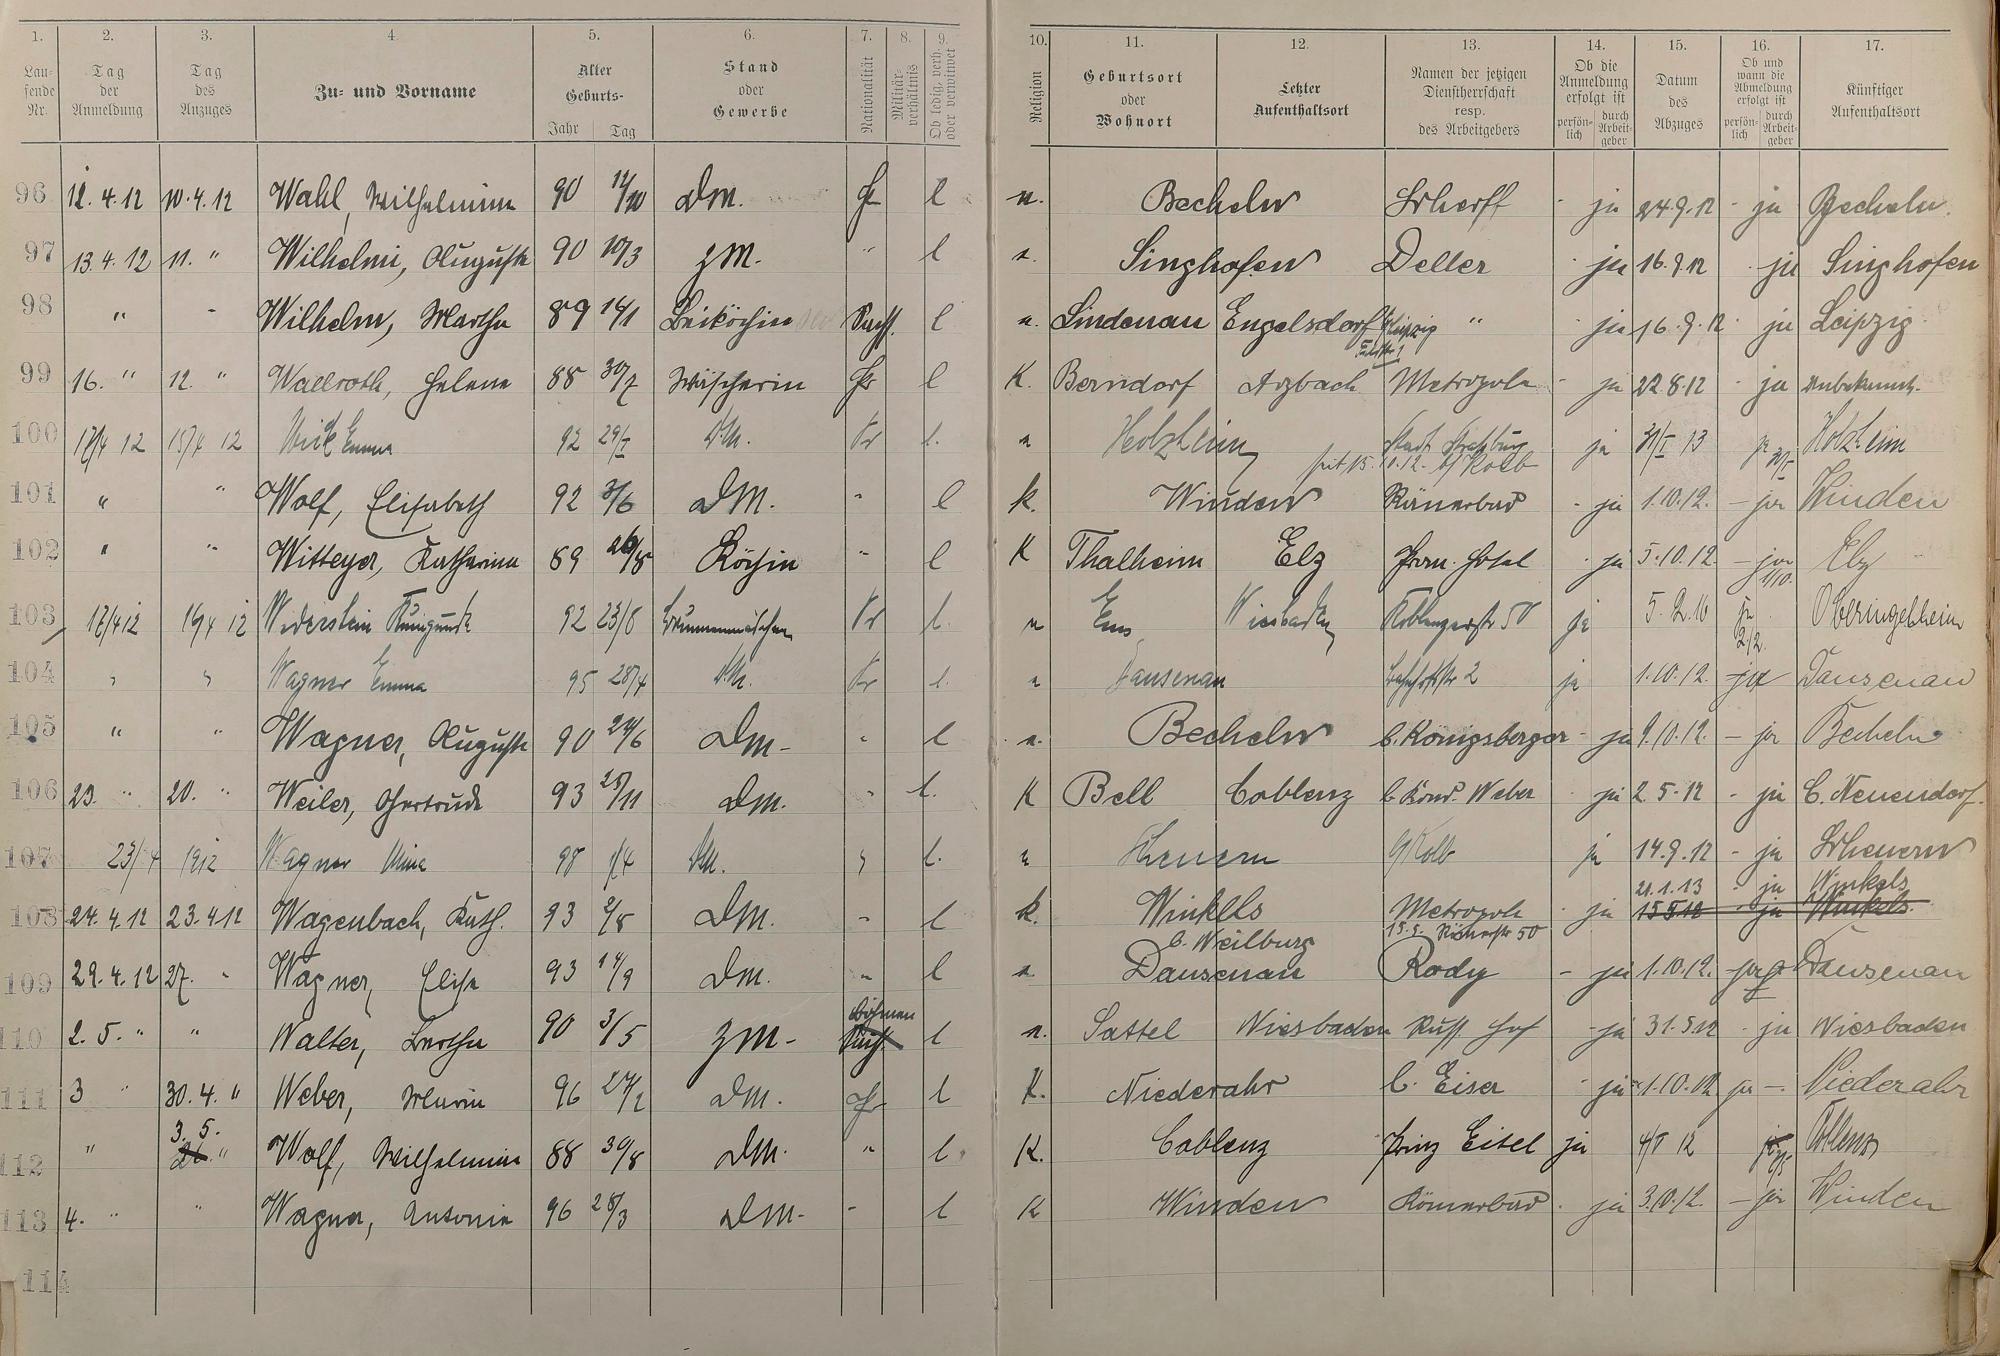 1. 2. 3. 4. 5. 6. 7. 8. 9. 10. 11. 12. 13. 14. 15. 16. 17.
Laufende Nr. Tag der Anmeldung Tag des Anzuges Zu- und Vorname Alter Geburts- Jahr Tag Stand oder Gewerbe Nationalität Militärverhältnis Ob ledig, verh. oder verwitwet Religion Geburtsort oder Wohnort Letzter Aufenthaltsort Namen der jetzigen Dienstherrschaft resp. des Arbeitgebers Ob die Anmeldung erfolgt ist persönlich durch Arbeitgeber Datum des Abzuges Ob und wann die Abmeldung erfolgt ist persönlich durch Arbeitgeber Künftiger Aufenthaltsort
96 12. 4. 12 10. 4. 12 Wahl, Wilhelmine 90 DM. Pr l Becheln - ja 24.9.12 - ja Becheln.
97 13. 4. 12 11. " Wilhelmi, Auguste 90 10/3 ZM. " l Singhofen Deller - ja 16.9.12 - ja Singhofen
98 " - Wilhelm, Martha 89 14/1 Beiköchin l Lindenau Engelsdorf b/Leipzig " ja 16.9.12 ja Leipzig
99 16. " 12. " Wallroth, Helene 88 30/7 Wäscherin Pr l K. Berndorf Arzbach Metropole - ja 22.8.12 - ja Unbekannt.
100 17/4 12 15/4 12 Emma 92 29/I D.M. Pr l. Holzheim Stadt Straßburg ja 31/I 13 ja Holzheim
seit 15.10.12. b/ Kolb
101 " " Wolf, Elisabeth 92 3/6 DM. " l k. Winden Römerbad - ja 1.10.12. - ja Winden
102 " " Witteyer, Katharina 89 26/8 Köchin " l K Thalheim Elz Prom. Hotel - ja 5.10.12. - ja 1/10. Elz
103 17/4 12 16/4 12 Wederstein Kunigunde 92 23/8 Brunnenmädchen Pr l. Ems Wiesbaden Koblenzerstr 50 ja ja 2/2. Oberingelheim
104 " " Wagner Emma 95 28/4 D.M. Pr l. Dausenau Bahnhofstr 2 ja 1.10.12. - ja Dausenau
105 " " Wagner, Auguste 90 24/6 DM - " l Becheln b. Königsberger - ja 9.10.12. - ja Becheln
106 23. " 20. " Weiler, Gertrude 93 25/11 DM. " l. K Bell Coblenz b. Kond. Weber - ja 2.5.12 - ja C. Neuendorf.
107 23/4 1912 Wagner Mina DM. " l. Scheuern Kolb ja 14.9.12 - ja Scheuern
108 24.4.12 23.4.12 Wagenbach, Kath. 93 2/8 DM. " l k. Winkels Metropole - ja 15.5.12 - ja Winkels.
21.1.13 " ja Winkels
b. Weilburg
109 29.4.12 27. " Wagner, Elise 93 14/9 DM. " l Dausenau Rody - ja 1.10.12. Dausenau
110 2. 5. " " Walter, Bertha 90 3/5 ZM - Böhmen l Sattel Wiesbaden Russ. Hof - ja 31.5.12 - ja Wiesbaden
111 3 " 30. 4. " Weber, Maria 96 DM. Pr l K. Niederahr b. Eiser - ja 1.10.12 ja - Niederahr
112 " 3. 5. " Wolf, Wilhelmine 88 30/8 DM. " l K. Coblenz Prinz Eitel ja 4/V 12
113 4. " " Wagner, Antonie 96 28/3 DM - " l K Winden Römerbad - ja 3.10.12. - ja Winden
114